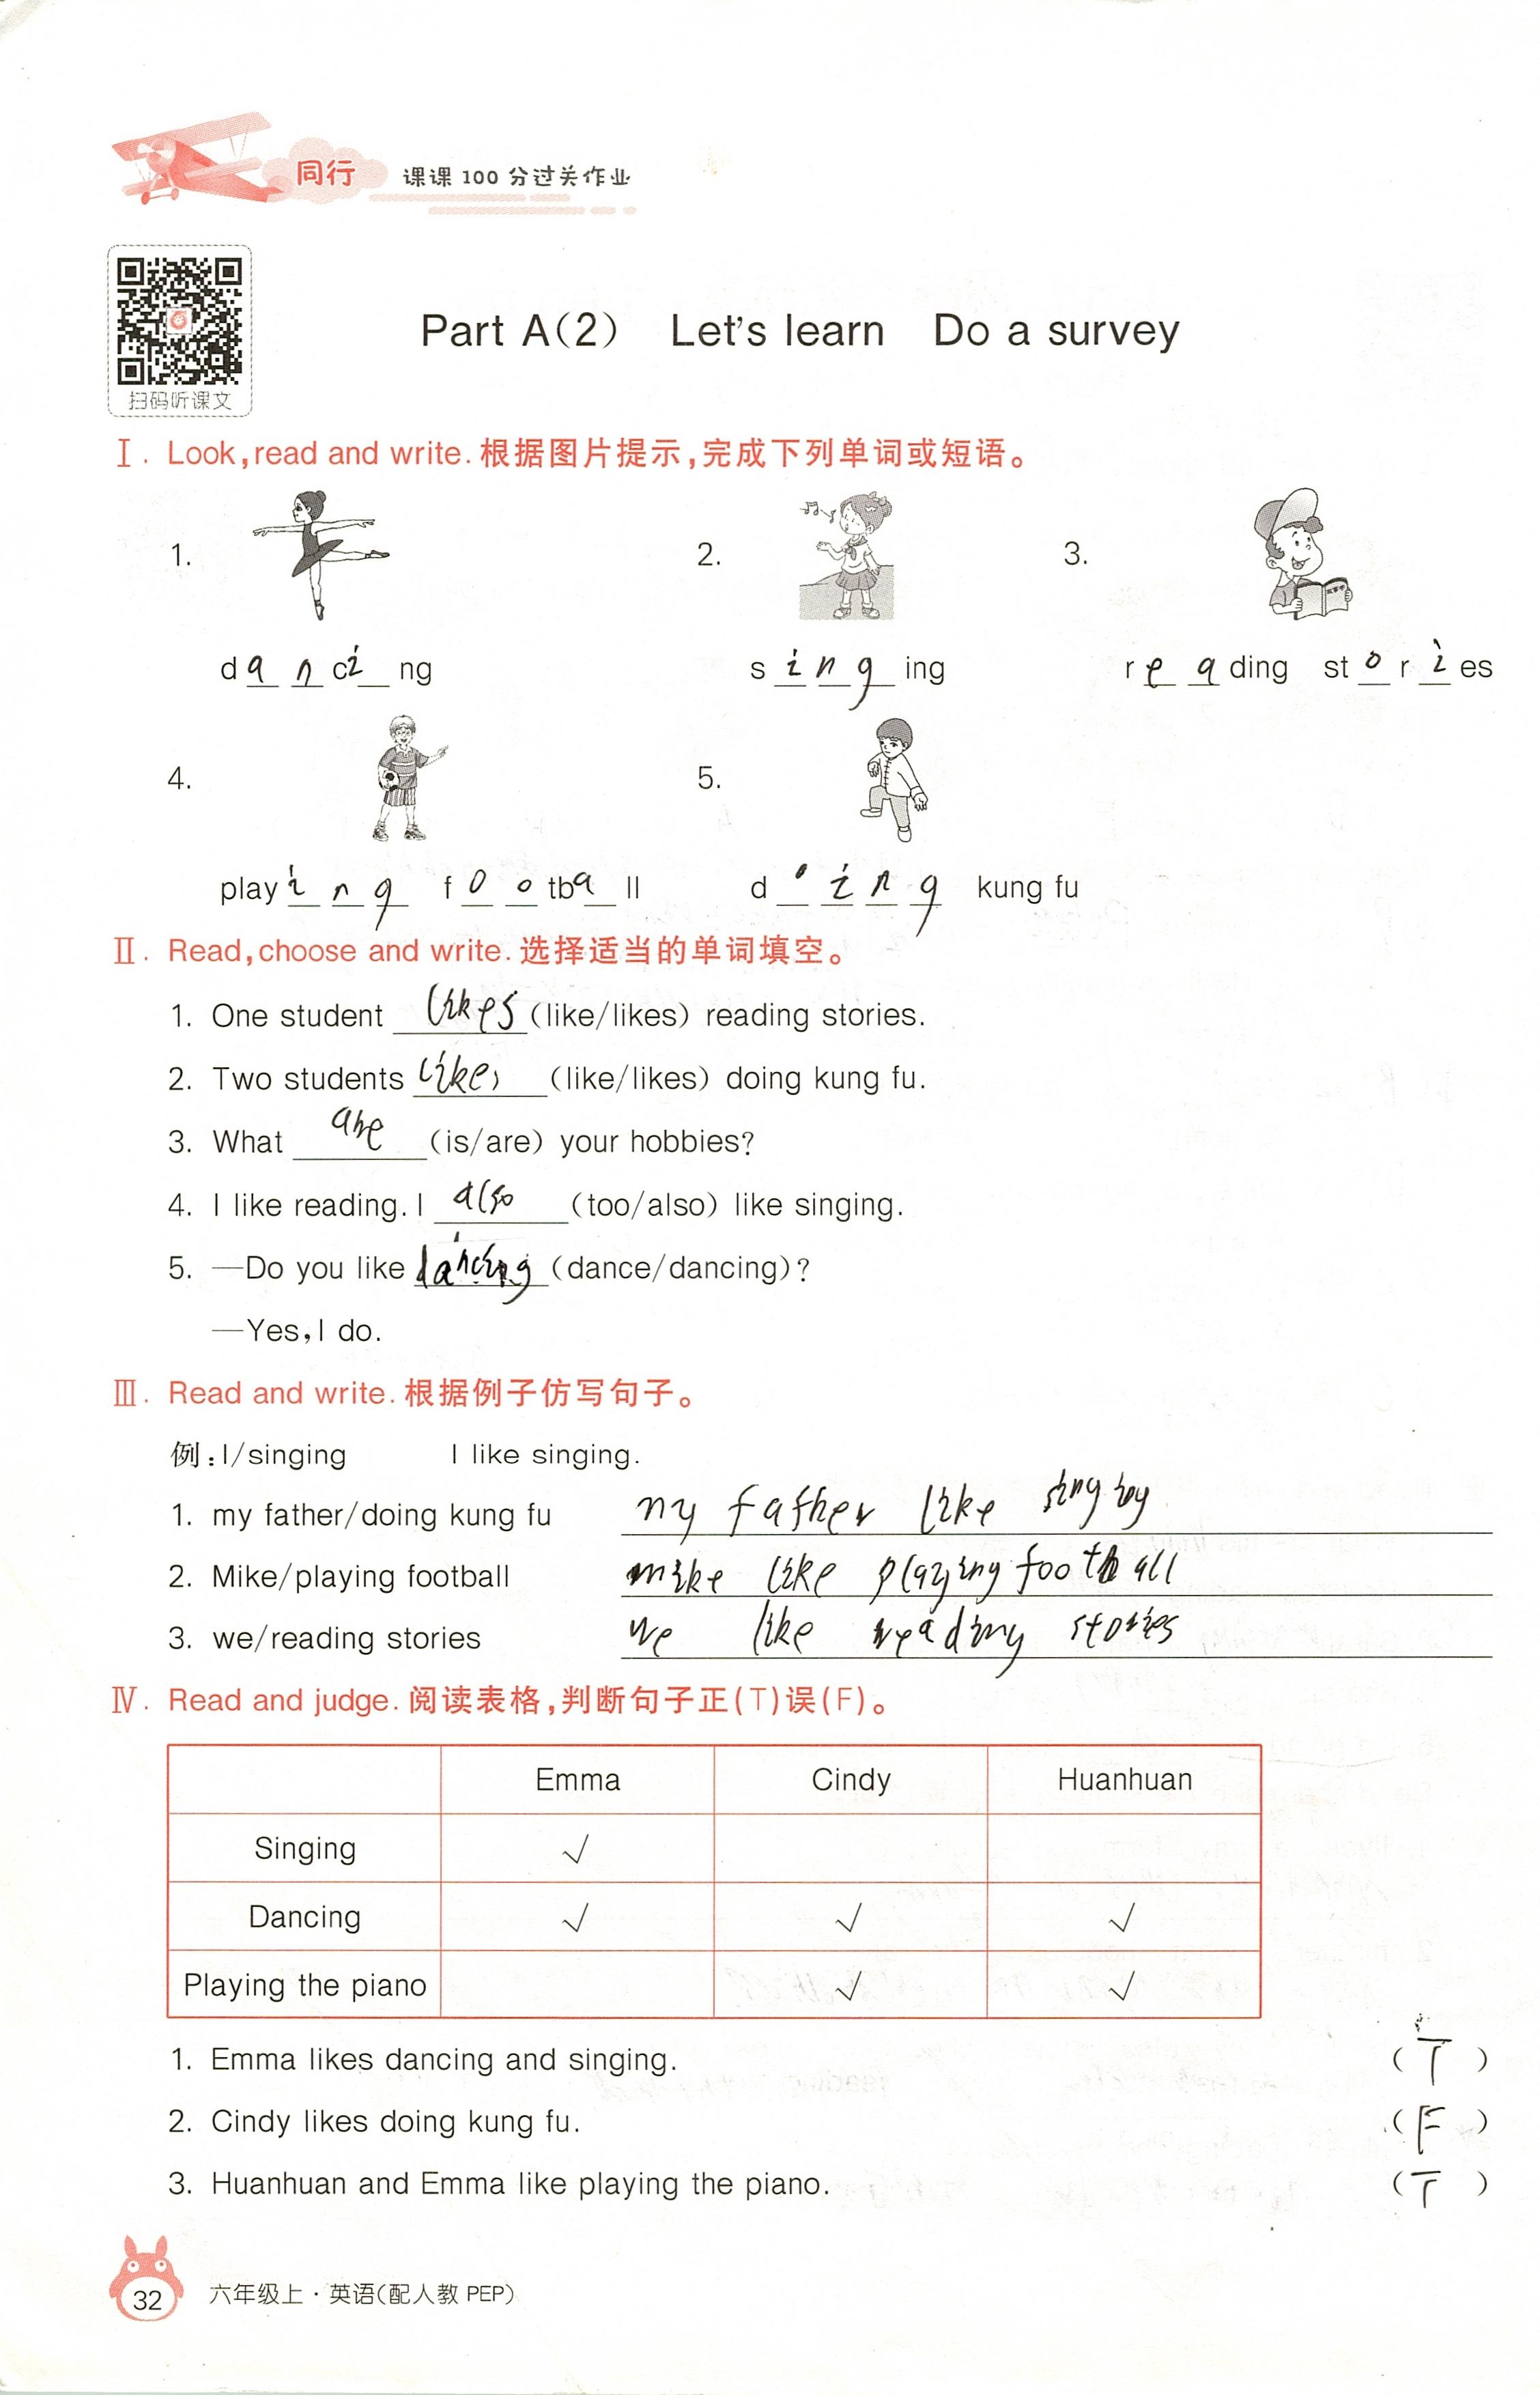 同行 课课100分过关作业
扫码听课文
Part A(2) Let's learn Do a survey
Ⅰ. Look,read and write.根据图片提示,完成下列单词或短语。
1. 2. 3.
d a n ci ng s i n g ing r e a ding st o r i es
4. 5.
play i n g f o o tba ll d o i n g kung fu
Ⅱ. Read,choose and write.选择适当的单词填空。
1. One student likes (like/likes) reading stories.
2. Two students like (like/likes) doing kung fu.
3. What are (is/are) your hobbies?
4. I like reading. I also (too/also) like singing.
5. —Do you like dancing (dance/dancing)?
—Yes,I do.
Ⅲ. Read and write.根据例子仿写句子。
例:I/singing I like singing.
1. my father/doing kung fu my father like singing
2. Mike/playing football mike like playing football
3. we/reading stories we like reading stories
Ⅳ. Read and judge.阅读表格,判断句子正(T)误(F)。
Emma Cindy Huanhuan
Singing √
Dancing √ √ √
Playing the piano √ √
1. Emma likes dancing and singing. ( T )
2. Cindy likes doing kung fu. ( F )
3. Huanhuan and Emma like playing the piano. ( T )
32 六年级上·英语(配人教 PEP)